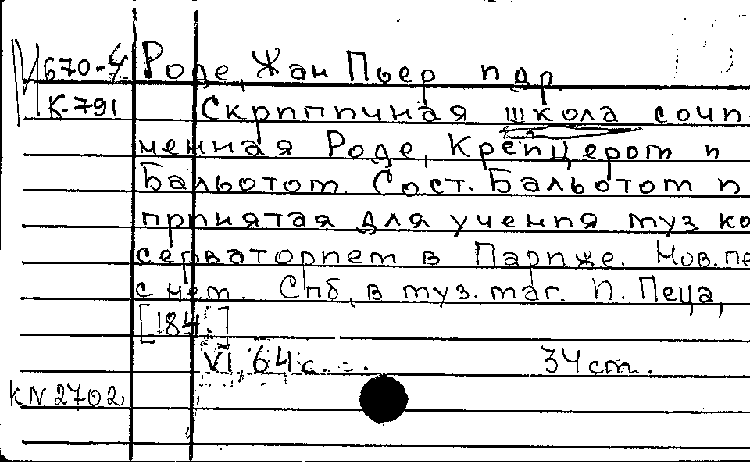 М 670-4 Роде, Жан Пьер и др.
К-791 Скрипичная школа сочи-
ненная Роде, Крейцером и
Бальотом. Сост. Бальотом и
принятая для учения муз. ко
серваторием в Париже. Нов. пе
с нем. Спб, в муз. маг. П. Пеца,
[184.]
VI, 64 с. 34 см.
КN 2702